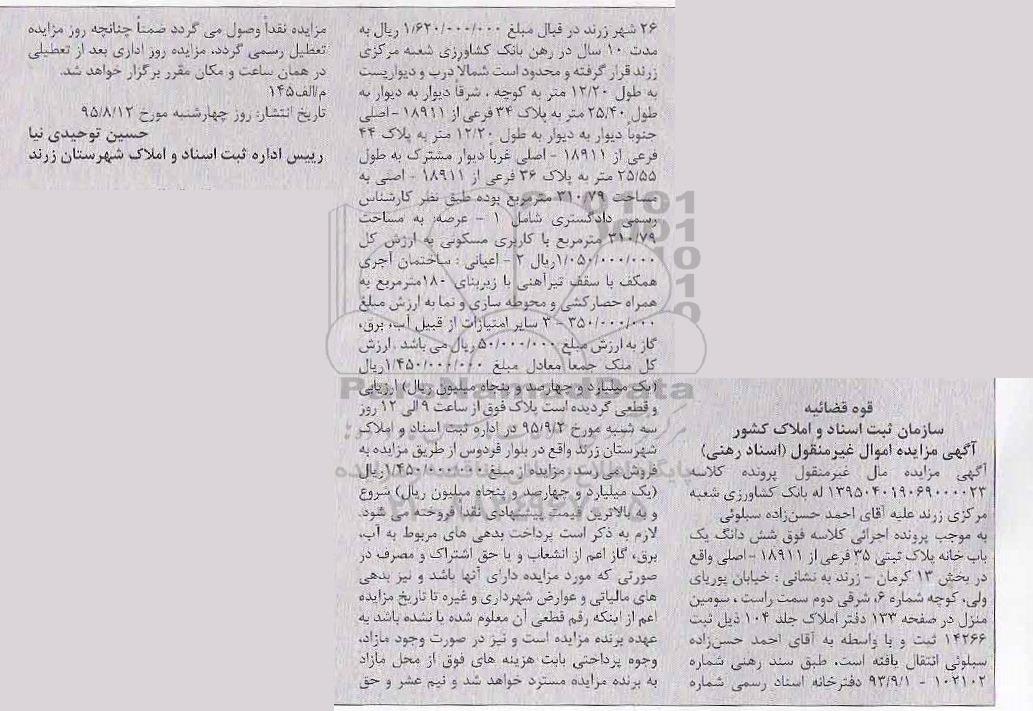 قوه قضائیه
سازمان ثبت اسناد و املاک کشور
آگهی مزایده اموال غیرمنقول (اسناد رهنی)
آگهی مزایده مال غیرمنقول پرونده کلاسه
۱۳۹۵۰۴۰۱۹۰۶۹۰۰۰۰۲۳ له بانک کشاورزی شعبه
مرکزی زرند علیه آقای احمد حسن‌زاده سیلوئی
به موجب پرونده اجرائی کلاسه فوق شش دانگ یک
باب خانه پلاک ثبتی ۳۵ فرعی از ۱۸۹۱۱ -اصلی واقع
در بخش ۱۳ کرمان - زرند به نشانی : خیابان پوریای
ولی، کوچه شماره ۶، شرقی دوم سمت راست ، سومین
منزل در صفحه ۱۳۳ دفتر املاک جلد ۱۰۴ ذیل ثبت
۱۴۲۶۶ ثبت و با واسطه به آقای احمد حسن‌زاده
سیلوئی انتقال یافته است، طبق سند رهنی شماره
۱۰۲۱۰۲ - ۹۳/۹/۱ دفترخانه اسناد رسمی شماره
۲۶ شهر زرند در قبال مبلغ ۱/۶۲۰/۰۰۰/۰۰۰ ریال به
مدت ۱۰ سال در رهن بانک کشاورزی شعبه مرکزی
زرند قرار گرفته و محدود است شمالاً درب و دیواریست
به طول ۱۲/۲۰ متر به کوچه ، شرقاً دیوار به دیوار به
طول ۲۵/۴۰ متر به پلاک ۳۴ فرعی از ۱۸۹۱۱ -اصلی
جنوباً دیوار به دیوار به طول ۱۲/۲۰ متر به پلاک ۴۴
فرعی از ۱۸۹۱۱ - اصلی غرباً دیوار مشترک به طول
۲۵/۵۵ متر به پلاک ۳۶ فرعی از ۱۸۹۱۱ - اصلی به
مساحت ۳۱۰/۷۹ مترمربع بوده طبق نظر کارشناس
رسمی دادگستری شامل ۱ - عرصه: به مساحت
۳۱۰/۷۹ مترمربع با کاربری مسکونی به ارزش کل
۱/۰۵۰/۰۰۰/۰۰۰ریال ۲ - اعیانی : ساختمان آجری
همکف با سقف تیرآهنی با زیربنای ۱۸۰مترمربع به
همراه حصارکشی و محوطه سازی و نما به ارزش مبلغ
۳۵۰/۰۰۰/۰۰۰ - ۳ سایر امتیازات از قبیل آب، برق،
گاز به ارزش مبلغ ۵۰/۰۰۰/۰۰۰ ریال می باشد . ارزش
کل ملک جمعاً معادل مبلغ ۱/۴۵۰/۰۰۰/۰۰۰ریال
(یک میلیارد و چهارصد و پنجاه میلیون ریال) ارزیابی
و قطعی گردیده است پلاک فوق از ساعت ۹ الی ۱۲ روز
سه شنبه مورخ ۹۵/۹/۲ در اداره ثبت اسناد و املاک
شهرستان زرند واقع در بلوار فردوس از طریق مزایده به
فروش می رسد. مزایده از مبلغ ۱/۴۵۰/۰۰۰/۰۰۰ریال
(یک میلیارد و چهارصد و پنجاه میلیون ریال) شروع
و به بالاترین قیمت پیشنهادی نقداً فروخته می شود.
لازم به ذکر است پرداخت بدهی های مربوط به آب،
برق، گاز اعم از انشعاب و یا حق اشتراک و مصرف در
صورتی که مورد مزایده دارای آنها باشد و نیز بدهی
های مالیاتی و عوارض شهرداری و غیره تا تاریخ مزایده
اعم از اینکه رقم قطعی آن معلوم شده یا نشده باشد به
عهده برنده مزایده است و نیز در صورت وجود مازاد،
وجوه پرداختی بابت هزینه های فوق از محل مازاد
به برنده مزایده مسترد خواهد شد و نیم عشر و حق
مزایده نقداً وصول می گردد ضمناً چنانچه روز مزایده
تعطیل رسمی گردد، مزایده روز اداری بعد از تعطیلی
در همان ساعت و مکان مقرر برگزار خواهد شد.
م/الف۱۴۵
تاریخ انتشار: روز چهارشنبه مورخ ۹۵/۸/۱۲
حسین توحیدی نیا
رییس اداره ثبت اسناد و املاک شهرستان زرند
ParsNamadData